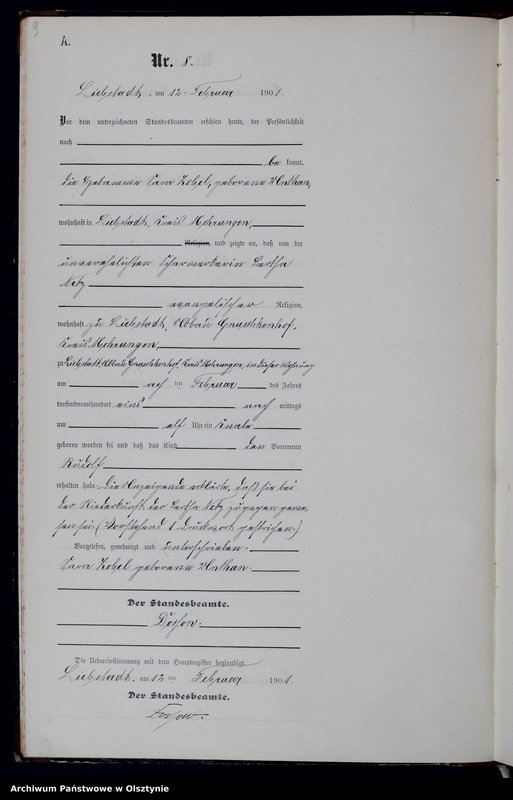 9
A.
Nr. 8.
Liebstadt, am 12. Februar 1901.
Vor dem unterzeichneten Standesbeamten erschien heute, der Persönlichkeit
nach
be kannt,
die Hebamme Sara Zobel, geborene
wohnhaft in Liebstadt, Kreis Mohrungen,
Religion, und zeigte an, daß von der
unverehelichten Bertha
Netz
evangelischer Religion,
wohnhaft zu Liebstadt, Abbau
Kreis Mohrungen,
zu Liebstadt, Abbau Kreis Mohrungen, in dieser Wohnung
am ten Februar des Jahres
tausendneunhundert eins nach mittags
um elf Uhr ein Knabe
geboren worden sei und daß das Kind den Vornamen
Rudolf
erhalten habe. Die Anzeigende erklärte, daß sie bei
der Niederkunft der Bertha Netz zugegen gewe-
sen sei. (Vorstehend 1 Druckwort gestrichen.)
Vorgelesen, genehmigt und unterschrieben.
Sara Zobel geborene
Der Standesbeamte.
Die Uebereinstimmung mit dem Hauptregister beglaubigt.
Liebstadt, am 12 ten Februar 1901.
Der Standesbeamte.
Archiwum Państwowe w Olsztynie